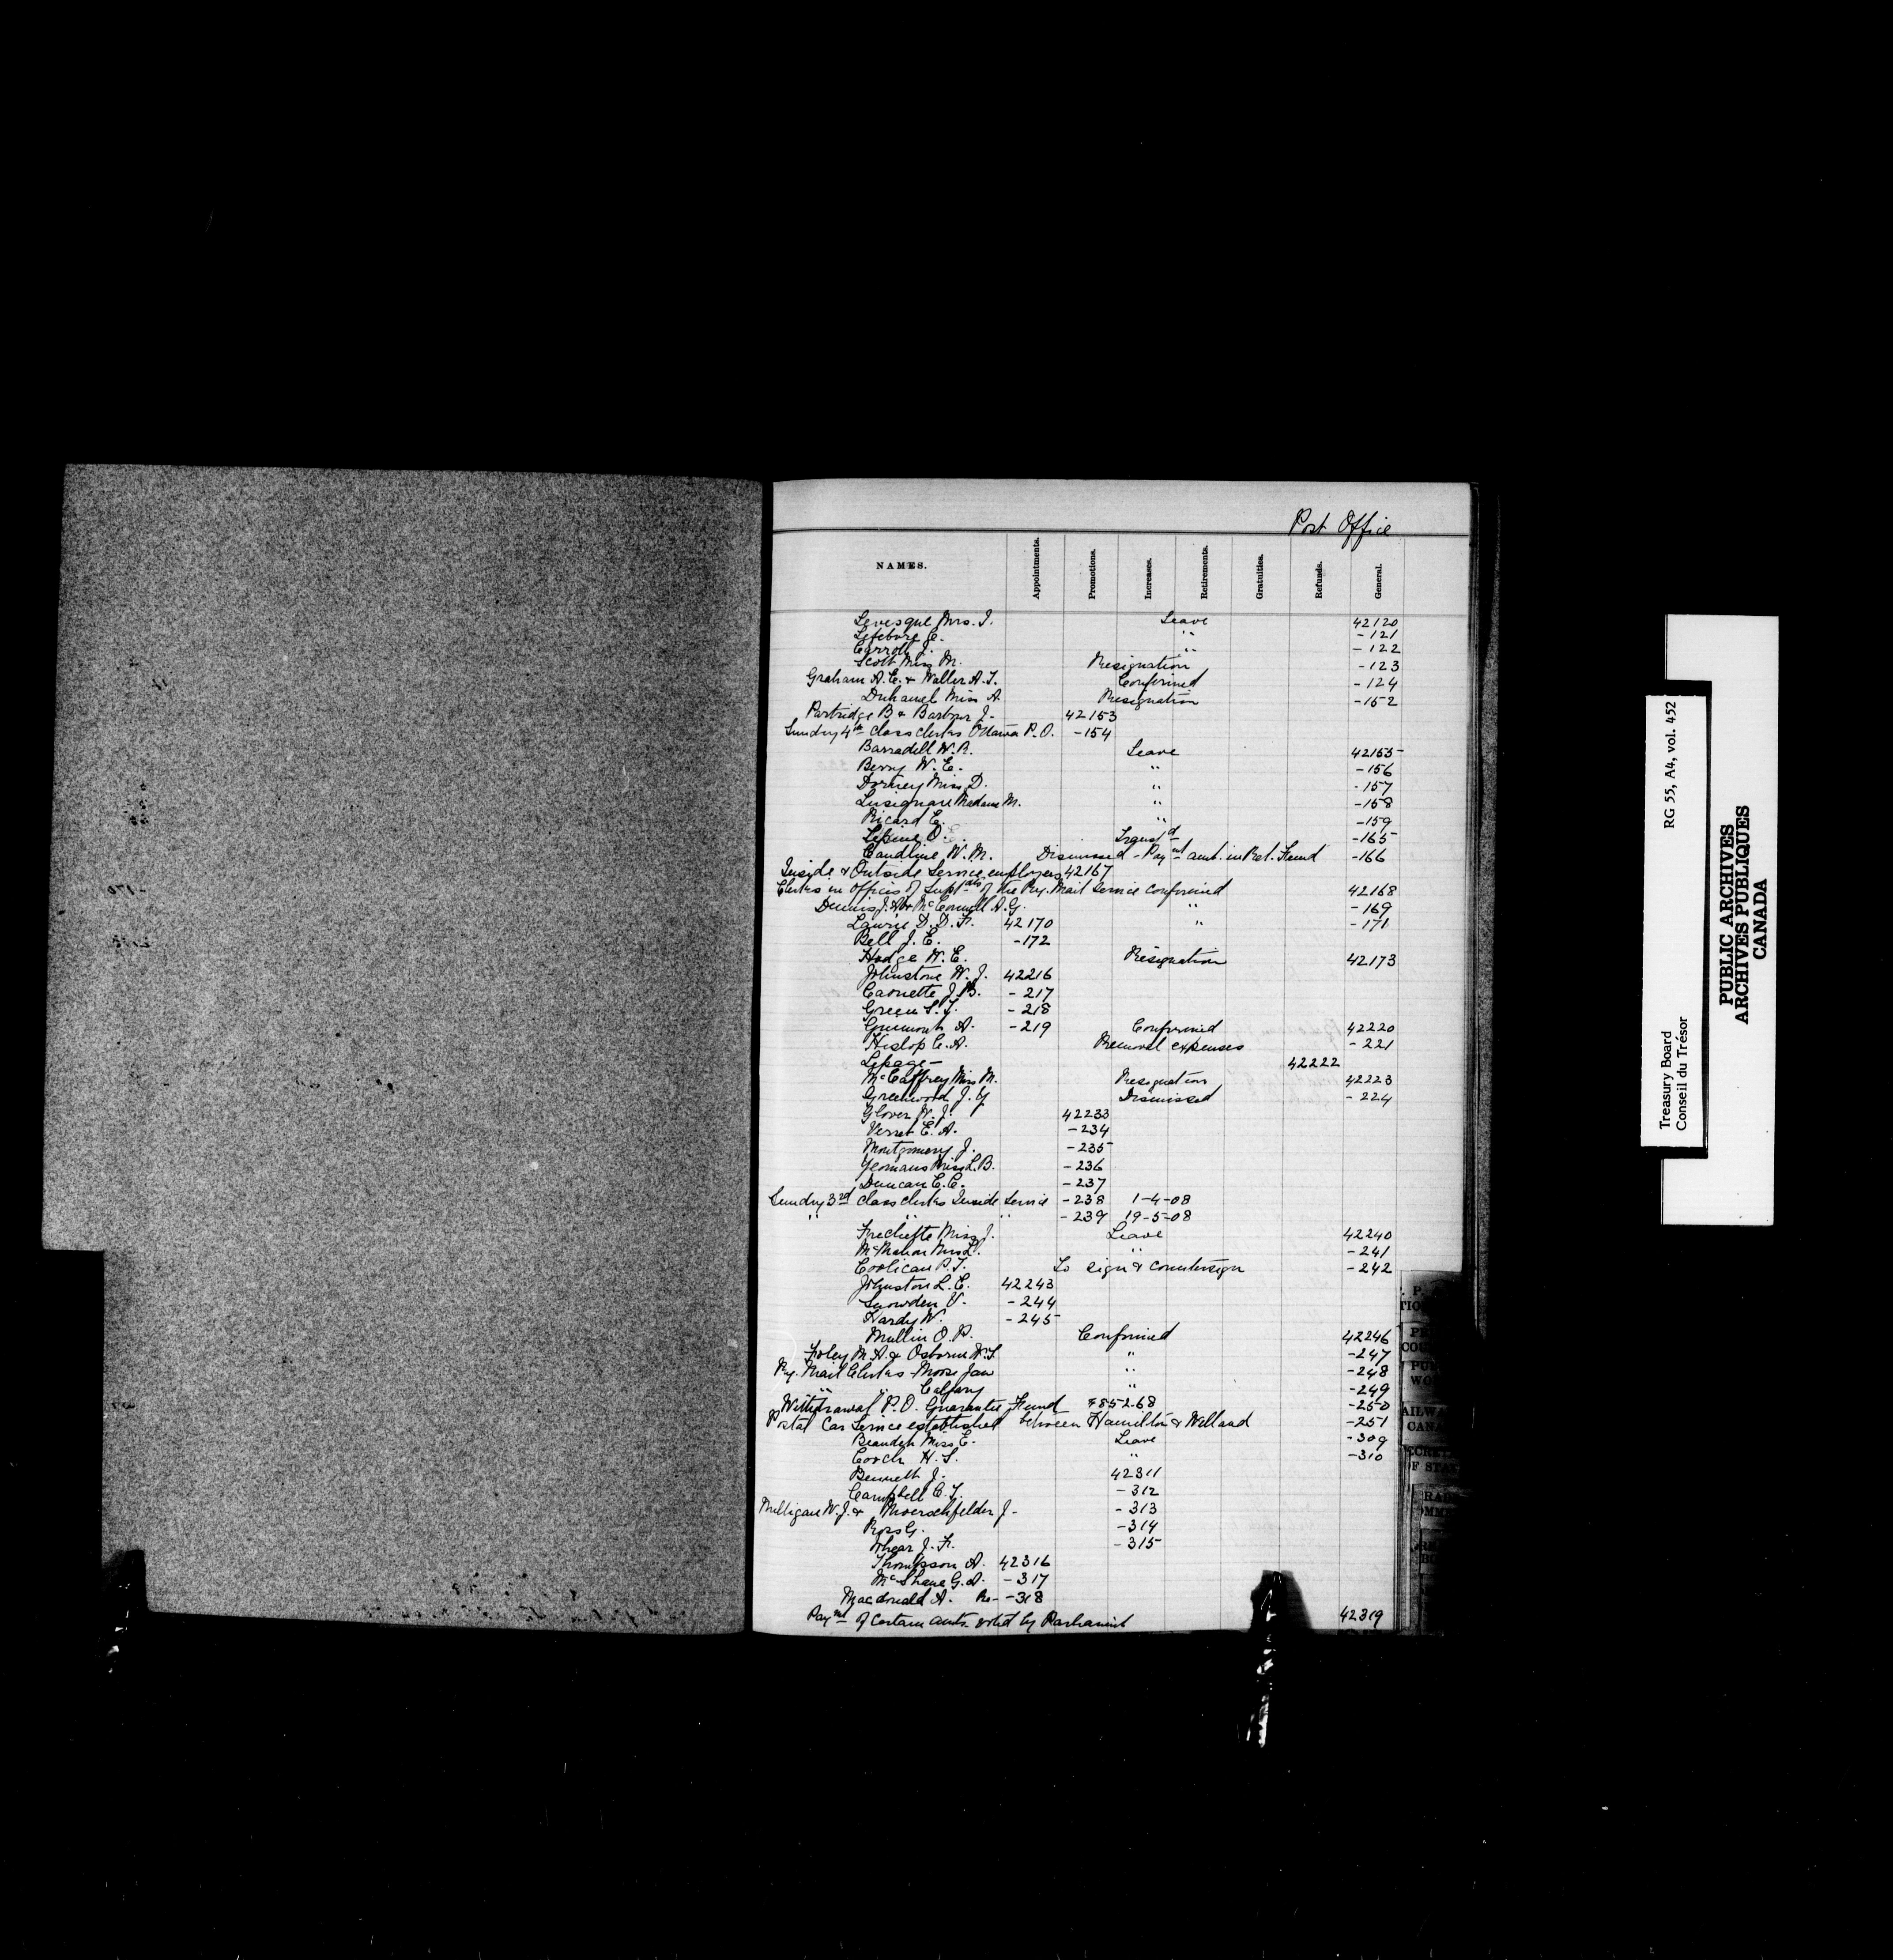 Post Office
NAMES. Appointments. Promotions. Increases. Retirements. Gratuities. Refunds. General.
Levesque Mrs. J. Leave 42120
Lefebvre E. " -121
Carroll J. " -122
Scott Miss M. Resignation -123
Graham A.E. & Waller A.T. Confirmed -124
Duhamel Miss A. Resignation -152
Partridge B & Barbour J- 42153
Sundry 4th class clerks Ottawa P.O. -154
Barradell W.R. Leave 42155
Berry W.E. " -156
Dorney Miss D. " -157
Lusignan Madame M. " -158
Ricard E. " -159
Lepine O. -165
Caudline W.M. Dismissed - Paynt amt. in Ret. Fund -166
Inside & Outside Service employees 42167
Clerks in offices of Suptdts of the Ry. Mail Service confirmed 42168
Dennis J.A. & McConnell A.G. " -169
Lawrie D.D.F. 42170 " -171
Bell J.E. -172
Hodge W.E. Resignation 42173
Johnstone W.J. 42216
Caouette J.B. -217
Green S.T. -218
A. -219 Confirmed 42220
Hislop C.A. Removal expenses -221
Lepage- 42222
McCaffrey Miss M. Resignation 42223
Greenwood J.Y Dismissed -224
Glover W.J. 42233
Verret E.A. -234
Montgomery J. -235
Yeomans Miss L.B. -236
Duncan C.C. -237
Sundry 3rd class clerks Inside Service -238 1-4-08
" " " -239 19-5-08
Frechette Miss J. Leave 42240
McMahon Miss L. " -241
Coolican P.T. To sign & countersign -242
Johnston L.E. 42243
Snowden V. -244
Hardy W. -245
Mullin O.P. Confirmed 42246
Foley M.A. & Osborne W.S. " -247
Ry. Mail Clerks - Moose Jaw " -248
" " Calgary " -249
Withdrawal P.O. Guarantee Fund $85268 -250
Postal Car Service established between Hamilton & Welland -251
Beaudch Miss E. Leave -309
Cooch H.S. " -310
Bennett J. 42311
Campbell C.T. -312
Milligan W.J. & Moerschfelder J- -313
Ross G. -314
J.F. -315
Thompson A. 42316
McShane G.A. -317
Macdonald A. Re- -318
Paynt of certain amts. voted by Parliament 42319
Treasury Board RG 55, A4, vol. 452
Conseil du Trésor
PUBLIC ARCHIVES
ARCHIVES PUBLIQUES
CANADA